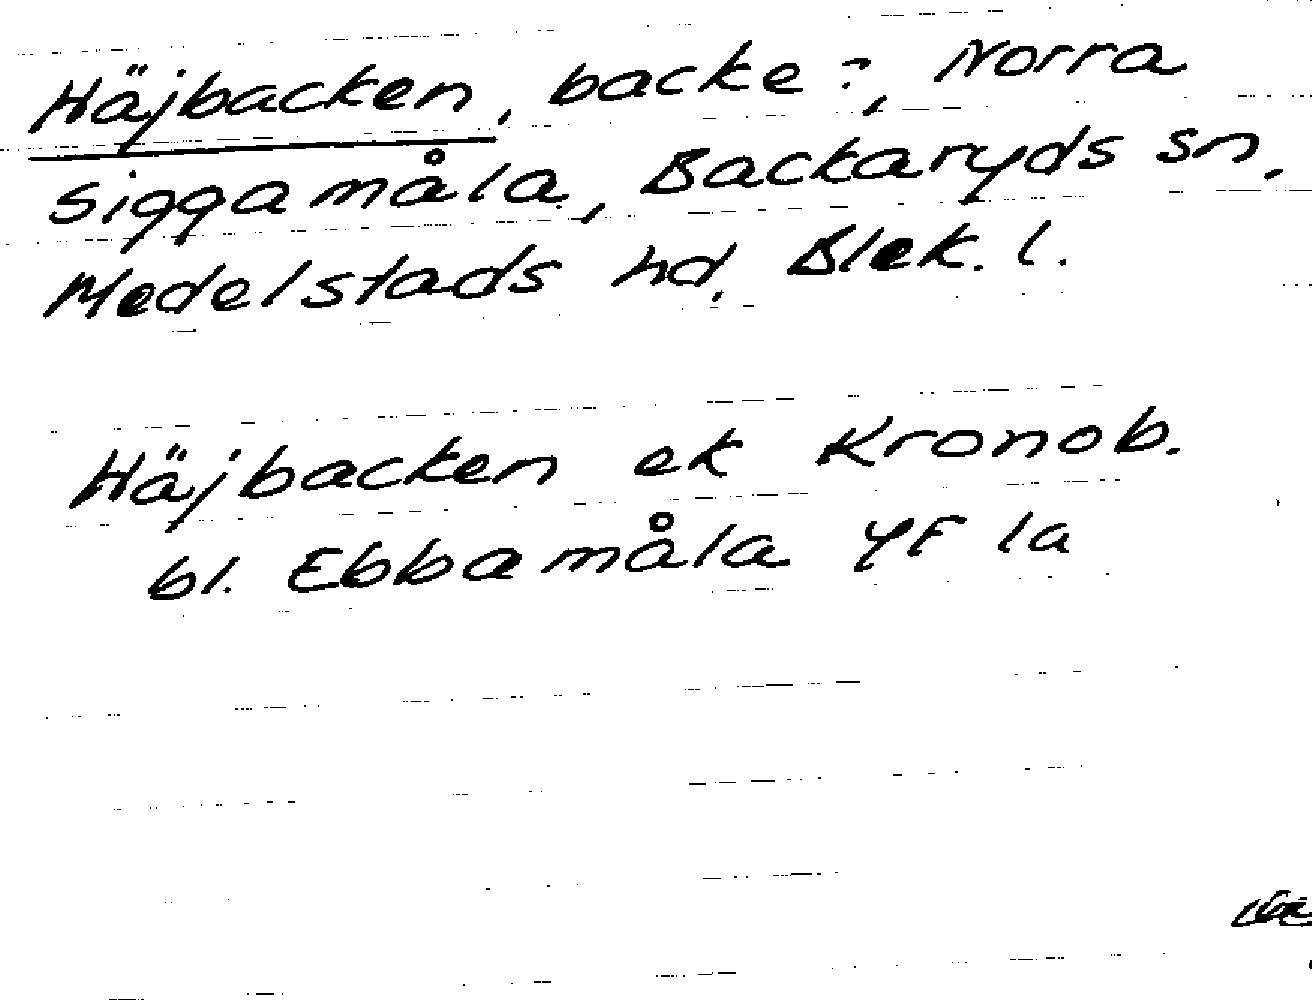 Häjbacken, backe?, Norra
Siggamåla, Backaryds sn.
Medelstads hd. Blek. l.
Häjbacken ek Kronob.
bl. Ebbamåla YF 1a